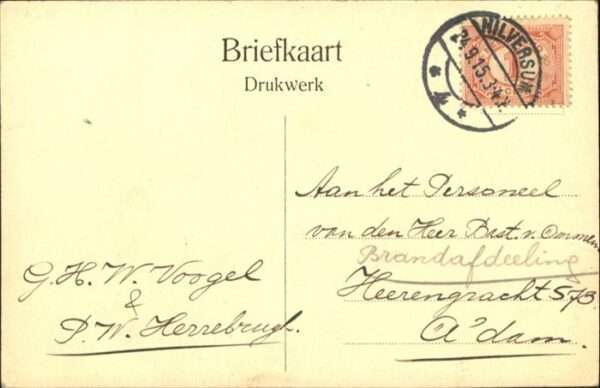 Briefkaart
Drukwerk
HILVERSUM
24.9.15.
* 4 *
Aan het Personeel
van den Heer Bast. v. Ommen
Brandafdeeling
Heerengracht 573
A'dam.
G.H.W. Voogel
&
P.W. Herrebrugh.